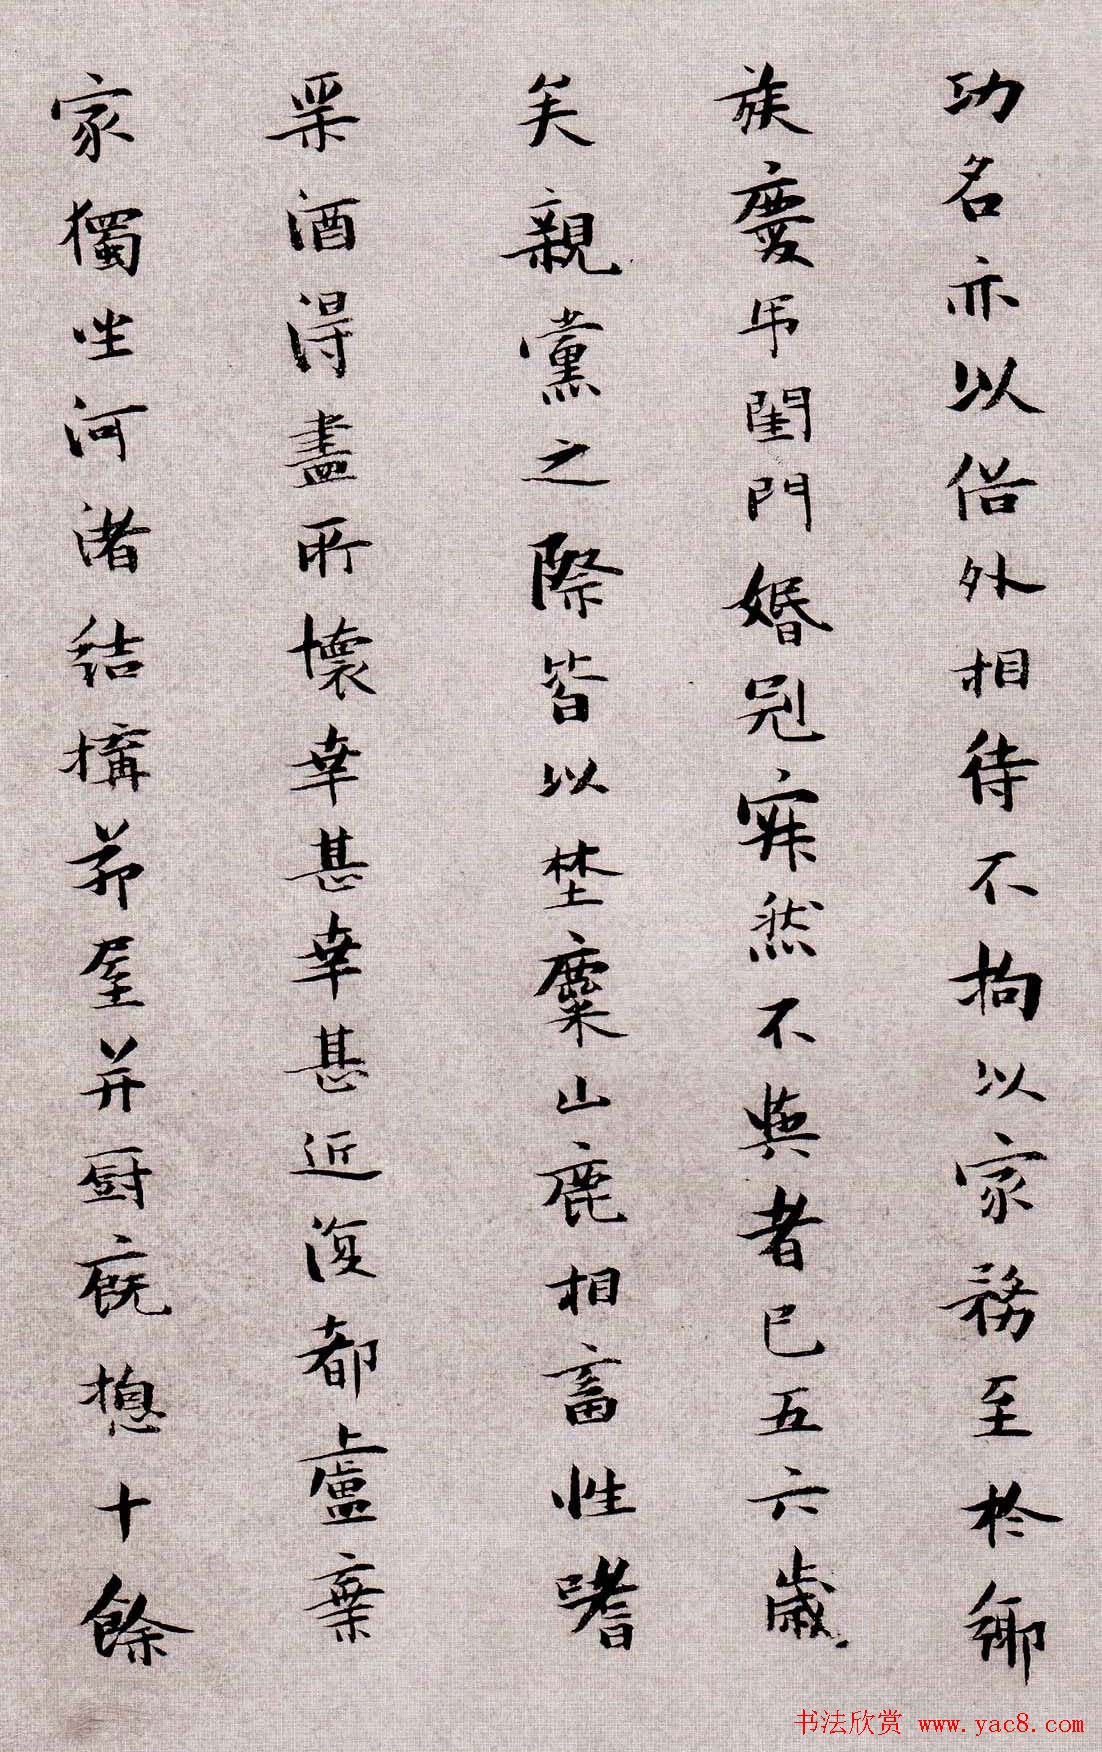 功名亦以俗外相待不拘以家務至於鄉
族慶吊閨門婚冠寂然不與者已五六歲
矣親黨之際皆以埜麋山鹿相畜性嗜
琹酒得盡所懷幸甚幸甚近復都盧棄
家獨坐河渚結構茆屋并厨廐揔十餘
书法欣赏 www.yac8.com